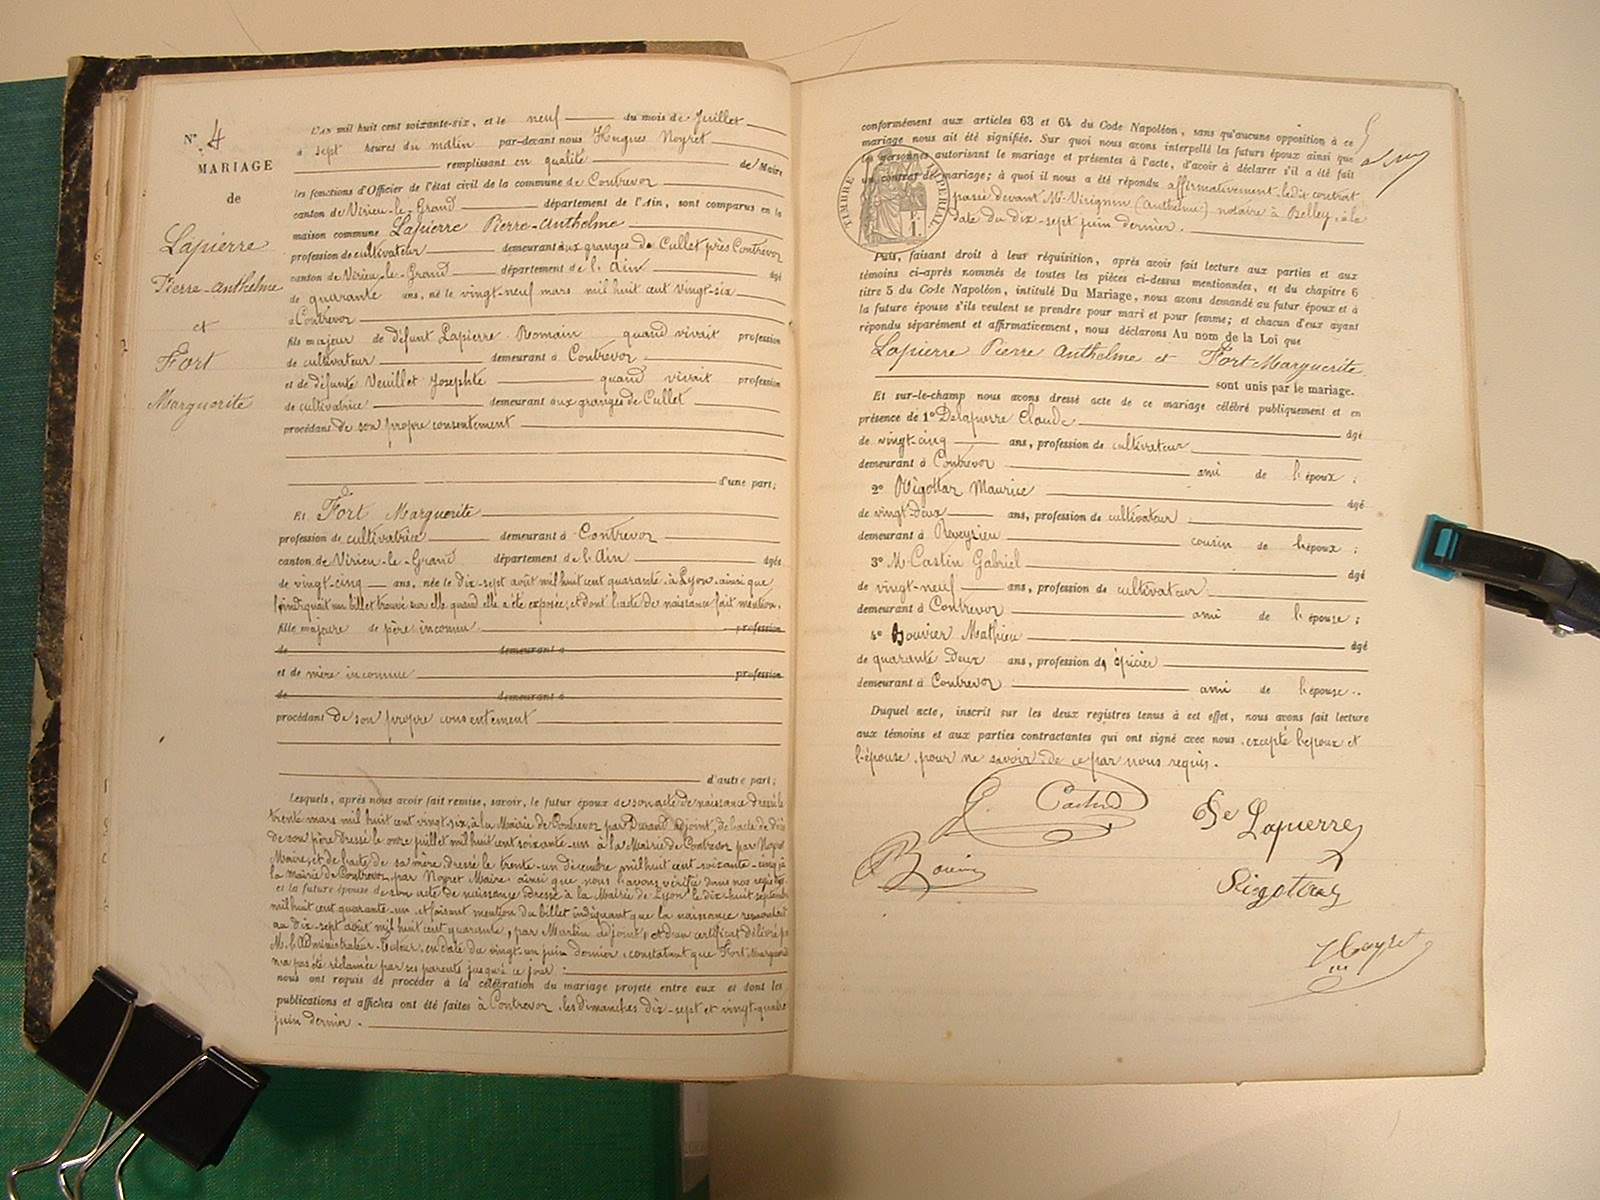 N° 4
MARIAGE
de
Lapierre
Pierre-Anthelme
et
Fort
Marguerite
L'an mil huit cent soixante-six, et le neuf du mois de Juillet
à sept heures du matin par-devant nous Hugues Noyret
remplissant en qualité de Maire
les fonctions d'Officier de l'état civil de la commune de Contrevoz
canton de Virieu-le-Grand département de l'Ain, sont comparus en la
maison commune Lapierre Pierre-Anthelme
profession de cultivateur demeurant aux granges de Cullet près Contrevoz
canton de Virieu-le-Grand département de l'Ain âgé
de quarante ans, né le vingt-neuf mars mil huit cent vingt-six
à Contrevoz
fils majeur de défunt Lapierre Romain quand vivait profession
de cultivateur demeurant à Contrevoz
et de défunte Veuillet Josephte quand vivait profession
de cultivatrice demeurant aux granges de Cullet
procédant de son propre consentement
d'une part;
Et Fort Marguerite
profession de cultivatrice demeurant à Contrevoz
canton de Virieu-le-Grand département de l'Ain âgée
de vingt-cinq ans, née le dix-sept août mil huit cent quarante à Lyon ainsi que
l'indiquait un billet trouvé sur elle quand elle a été exposée, et dont l'acte de naissance fait mention.
fille majeure de père inconnu profession
de demeurant à
et de mère inconnue profession
de demeurant à
procédant de son propre consentement
d'autre part;
Lesquels, après nous avoir fait remise, savoir, le futur époux de son acte de naissance dressé le
trente mars mil huit cent vingt-six, à la Mairie de Contrevoz par Durand adjoint, de l'acte de décès
de son père dressé le onze juillet mil huit cent soixante-un à la Mairie de Contrevoz par Noyret
Maire, et de l'acte de sa mère dressé le trente-un décembre mil huit cent soixante-cinq à
la Mairie de Contrevoz par Noyret Maire ainsi que nous l'avons vérifié dans nos registres
et la future épouse de son acte de naissance dressé à la Mairie de Lyon le dix-huit septembre
mil huit cent quarante-un et faisant mention du billet indiquant que la naissance remontait
au dix-sept août mil huit cent quarante, par Martin adjoint, et d'un certificat délivré par
M. l'Administrateur-Tuteur, en date du vingt-un juin dernier, constatant que Fort Marguerite
n'a pas été réclamée par ses parents jusqu'à ce jour :
nous ont requis de procéder à la célébration du mariage projeté entre eux et dont les
publications et affiches ont été faites à Contrevoz les dimanches dix-sept et vingt-quatre
juin dernier.
conformément aux articles 63 et 64 du Code Napoléon, sans qu'aucune opposition à ce
mariage nous ait été signifiée. Sur quoi nous avons interpellé les futurs époux ainsi que
les personnes autorisant le mariage et présentes à l'acte, d'avoir à déclarer s'il a été fait
un contrat de mariage; à quoi il nous a été répondu affirmativement ledit contrat
passé devant Me Virignin (Anthelme) notaire à Belley, à la
date du dix-sept juin dernier.
TIMBRE IMPERIAL
Puis, faisant droit à leur réquisition, après avoir fait lecture aux parties et aux
témoins ci-après nommés de toutes les pièces ci-dessus mentionnées, et du chapitre 6
titre 5 du Code Napoléon, intitulé Du Mariage, nous avons demandé au futur époux et à
la future épouse s'ils veulent se prendre pour mari et pour femme; et chacun d'eux ayant
répondu séparément et affirmativement, nous déclarons Au nom de la Loi que
Lapierre Pierre Anthelme et Fort Marguerite
sont unis par le mariage.
Et sur-le-champ nous avons dressé acte de ce mariage célébré publiquement et en
présence de 1° Delapierre Claude âgé
de vingt-cinq ans, profession de cultivateur
demeurant à Contrevoz ami de l'époux ;
2° Rigottaz Maurice âgé
de vingt-deux ans, profession de cultivateur
demeurant à Roveyrieu cousin de l'époux ;
3° M. Castin Gabriel âgé
de vingt-neuf ans, profession de cultivateur
demeurant à Contrevoz ami de l'épouse ;
4° Bouvier Mathieu âgé
de quarante deux ans, profession de épicier
demeurant à Contrevoz ami de l'épouse.
Duquel acte, inscrit sur les deux registres tenus à cet effet, nous avons fait lecture
aux témoins et aux parties contractantes qui ont signé avec nous, excepté l'époux et
l'épouse, pour ne savoir de ce par nous requis.
G. Castin
De Lapierre
Bouvier
Rigotaz
Noyret